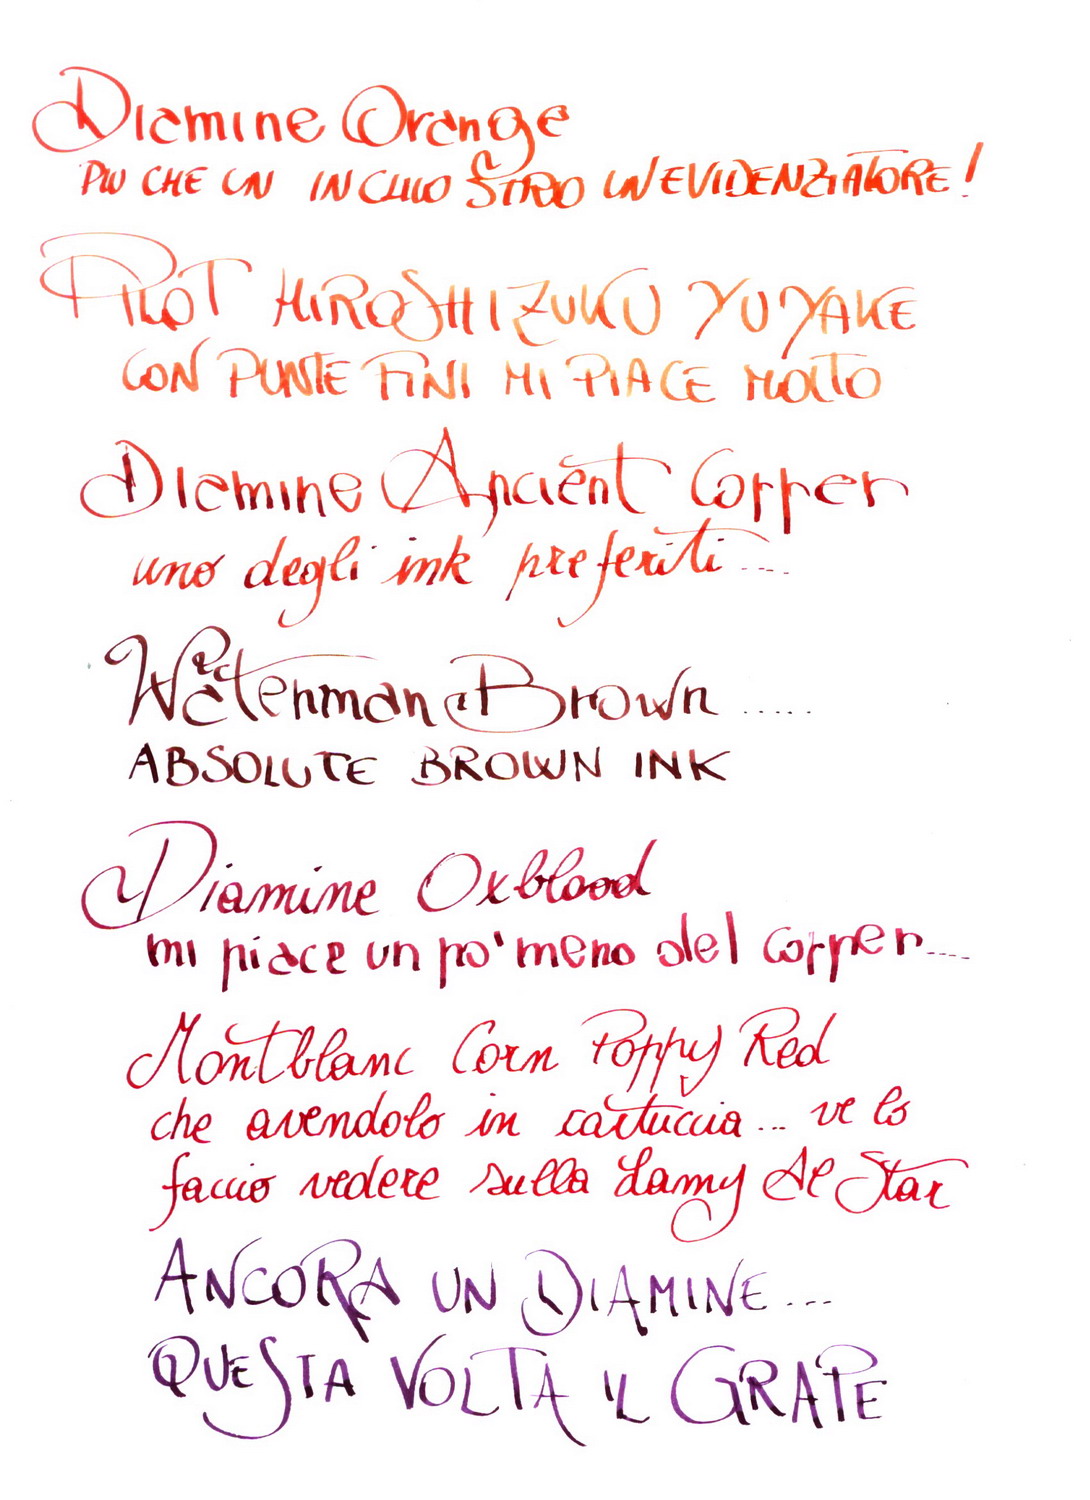 Diamine Orange
PIU CHE UN INCHIOSTRO UN EVIDENZIATORE!
PILOT HIROSHIZUKU YUYAKE
CON PUNTE FINI MI PIACE MOLTO
Diamine Ancient Copper
uno degli ink preferiti....
Waterman Brown .....
ABSOLUTE BROWN INK
Diamine Oxblood
mi piace un po' meno del copper....
Montblanc Corn Poppy Red
che avendolo in cartuccia... ve lo
faccio vedere sulla Lamy Al Star
ANCORA UN DIAMINE...
QUESTA VOLTA IL GRAPE